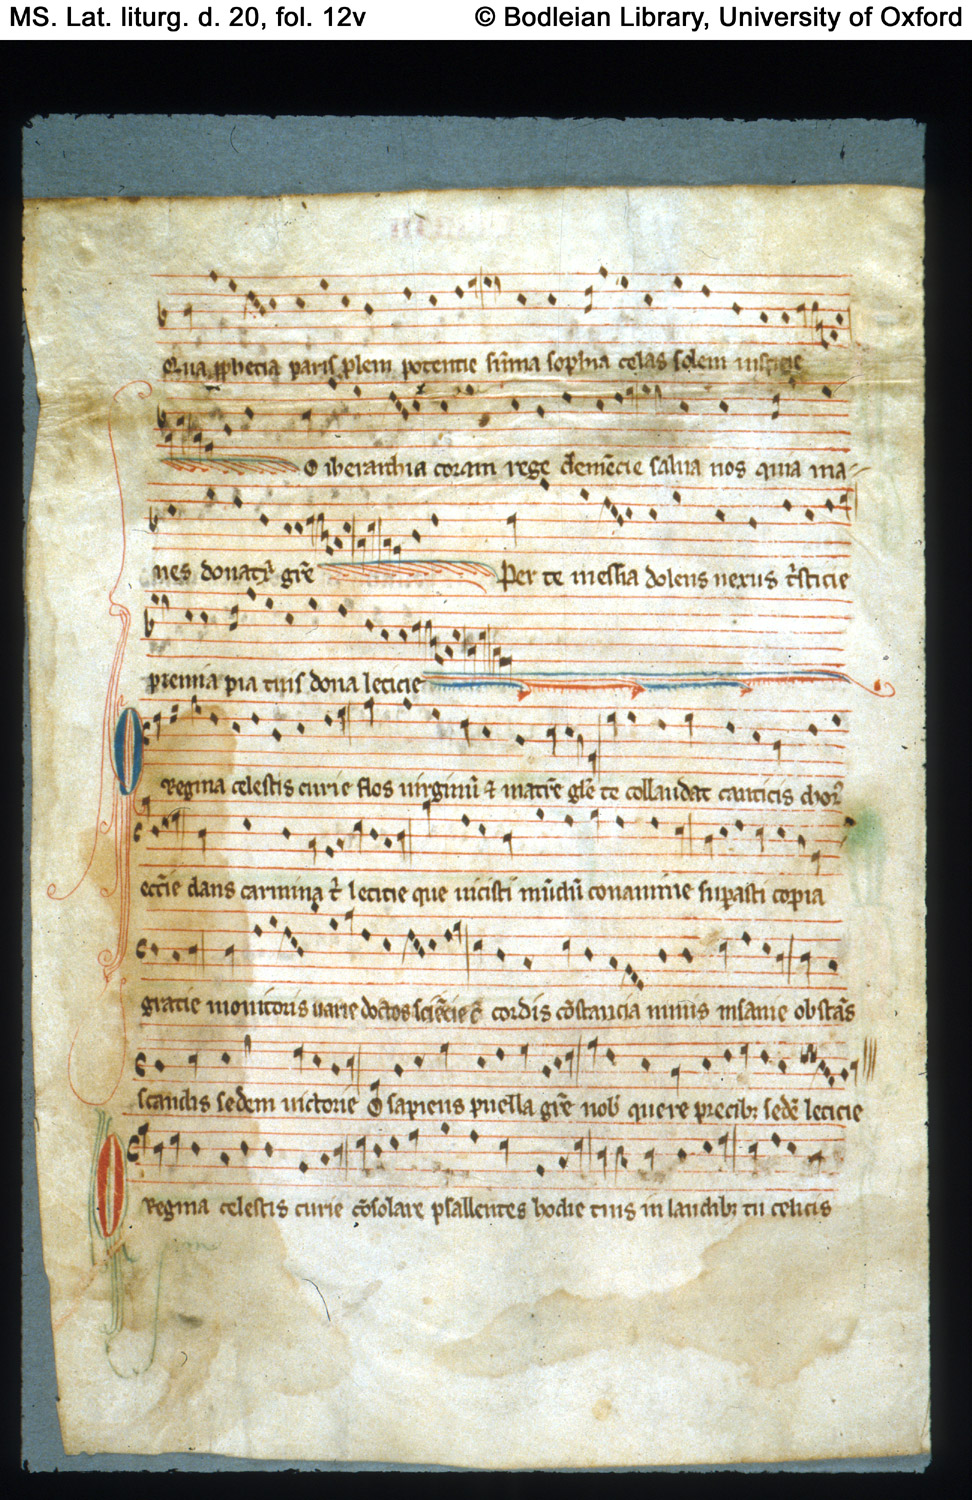 MS. Lat. liturg. d. 20, fol. 12v © Bodleian Library, University of Oxford
Qua ꝓphecia paris plem potencie sūma sophia celas solem iusticie
O iherarchia coram rege clemēcie salua nos quia ma-
nes donatꝝ gr̄e Per te messia dolens nexus t̄sticie
premia pia tuis dona leticie
O Regina celestis curie flos uirginū ⁊ matr̄e gl̄e te collaudat canticis chorꝰ
ecc̄ie dans carmina t̄ leticie que uicisti mūdū conamine suꝑasti copia
gracie monitoris uarie doctos sciēcie cordis cōstancia minis insanie obstās
scandis sedem uictorie O sapiens puella gr̄e nob̄ quere precibꝫ sedē leticie
O Regina celestis curie cōsolare psallentes hodie tuis in laudibꝫ tu celicis